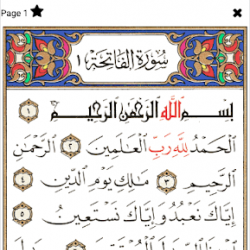 Page 1
سُورَةُ الفَاتِحَةِ ١
بِسْمِ اللَّهِ الرَّحْمَٰنِ الرَّحِيمِ ١
الْحَمْدُ لِلَّهِ رَبِّ الْعَالَمِينَ ٢ الرَّحْمَٰنِ
الرَّحِيمِ ٣ مَالِكِ يَوْمِ الدِّينِ ٤
إِيَّاكَ نَعْبُدُ وَإِيَّاكَ نَسْتَعِينُ ٥